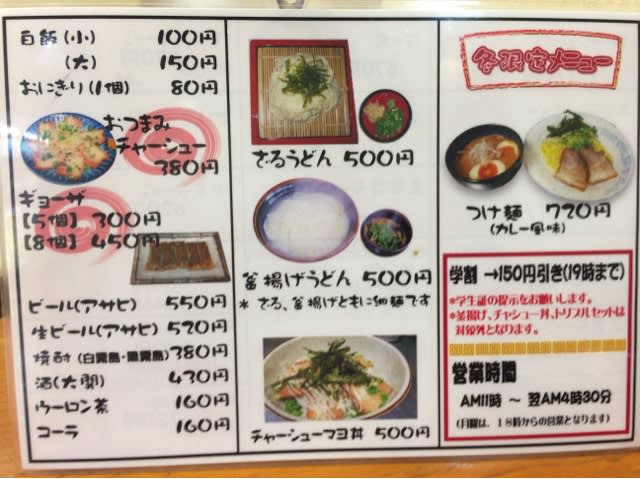 白飯(小) 100円
(大) 150円
おにぎり(1個) 80円
おつまみ
チャーシュー
380円
ギョーザ
【5個】 300円
【8個】 450円
ビール(アサヒ) 550円
生ビール(アサヒ) 520円
焼酎(白霧島・黒霧島) 380円
酒(大関) 430円
ウーロン茶 160円
コーラ 160円
ざるうどん 500円
釜揚げうどん 500円
* ざる、釜揚げともに細麺です
チャーシューマヨ丼 500円
冬限定メニュー
つけ麺 720円
(カレー風味)
学割 →150円引き(19時まで)
*学生証の提示をお願いします。
*釜揚げ、チャシュー丼、トリプルセットは
対象外となります。
営業時間
AM11時 ~ 翌AM4時30分
(月曜は、18時からの営業となります)